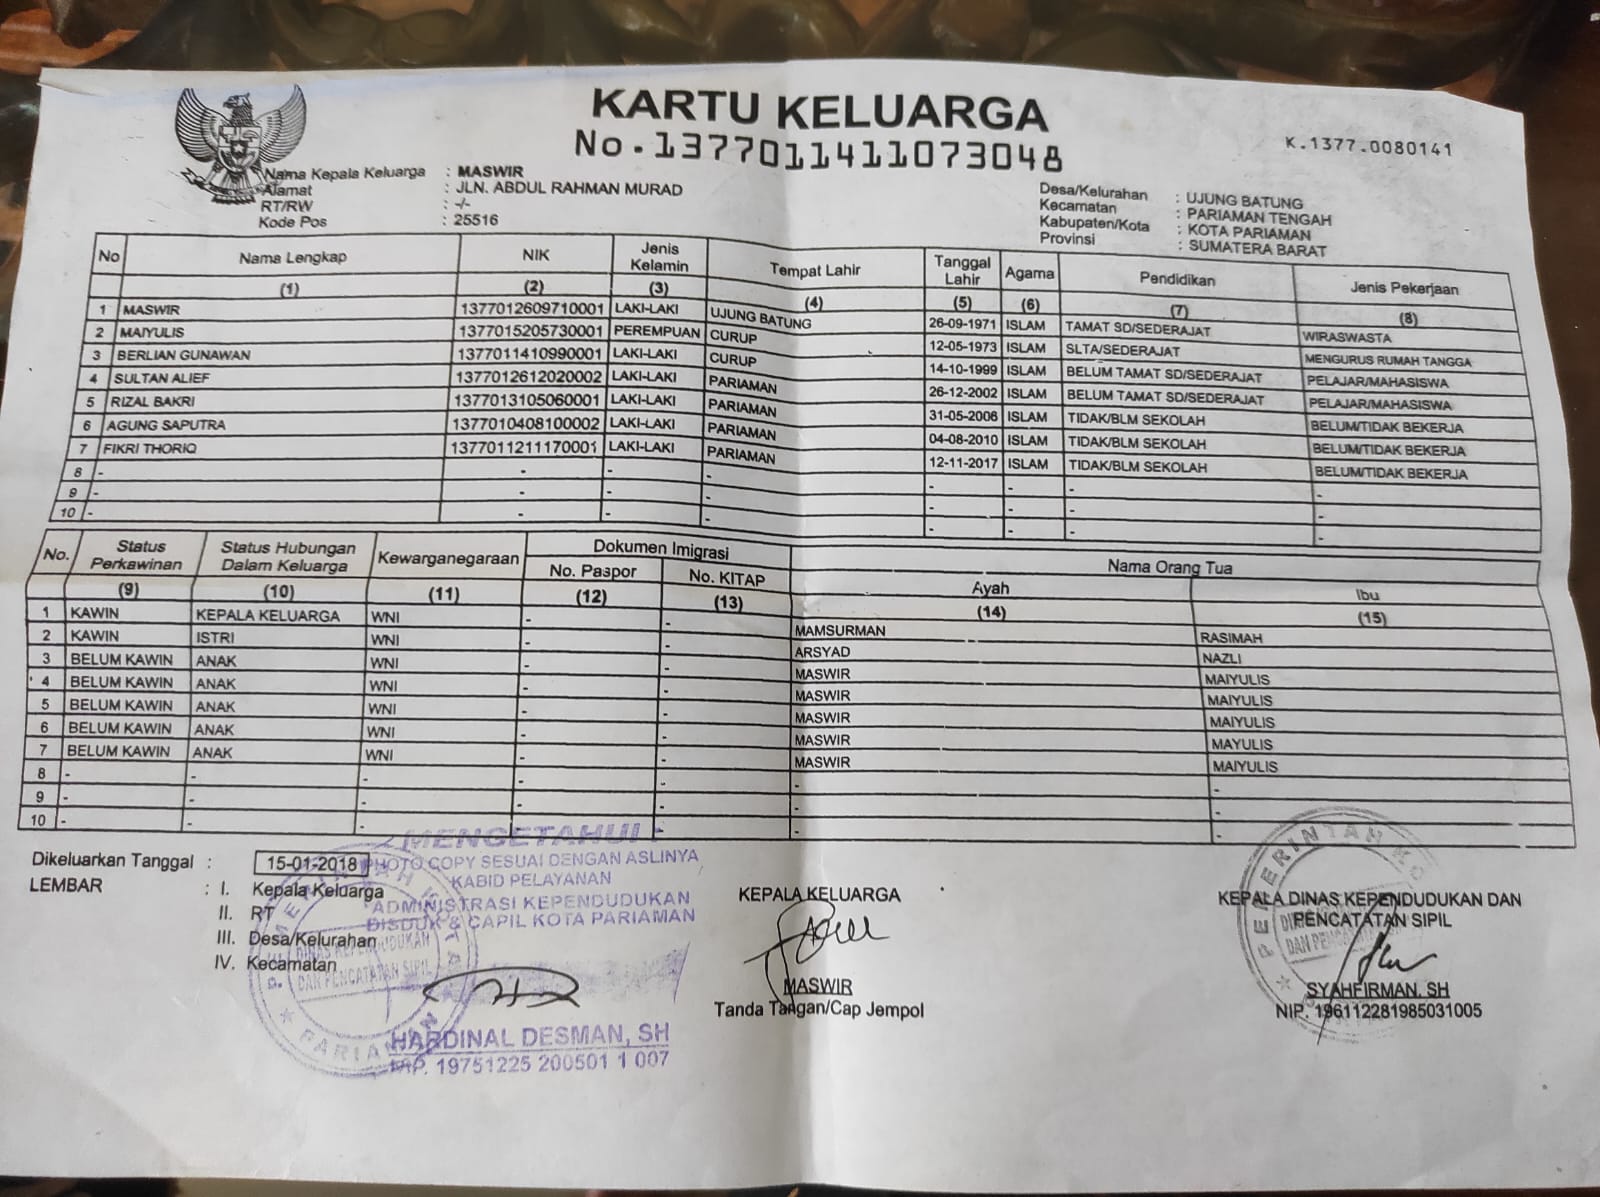 KARTU KELUARGA
No.1377011411073048
K.1377.0080141
Nama Kepala Keluarga : MASWIR
Alamat : JLN. ABDUL RAHMAN MURAD
RT/RW : -/-
Kode Pos : 25516
Desa/Kelurahan : UJUNG BATUNG
Kecamatan : PARIAMAN TENGAH
Kabupaten/Kota : KOTA PARIAMAN
Provinsi : SUMATERA BARAT
No Nama Lengkap NIK Jenis Kelamin Tempat Lahir Tanggal Lahir Agama Pendidikan Jenis Pekerjaan
(1) (2) (3) (4) (5) (6) (7) (8)
1 MASWIR 1377012609710001 LAKI-LAKI UJUNG BATUNG 26-09-1971 ISLAM TAMAT SD/SEDERAJAT WIRASWASTA
2 MAIYULIS 1377015205730001 PEREMPUAN CURUP 12-05-1973 ISLAM SLTA/SEDERAJAT MENGURUS RUMAH TANGGA
3 BERLIAN GUNAWAN 1377011410990001 LAKI-LAKI CURUP 14-10-1999 ISLAM BELUM TAMAT SD/SEDERAJAT PELAJAR/MAHASISWA
4 SULTAN ALIEF 1377012612020002 LAKI-LAKI PARIAMAN 26-12-2002 ISLAM BELUM TAMAT SD/SEDERAJAT PELAJAR/MAHASISWA
5 RIZAL BAKRI 1377013105060001 LAKI-LAKI PARIAMAN 31-05-2006 ISLAM TIDAK/BLM SEKOLAH BELUM/TIDAK BEKERJA
6 AGUNG SAPUTRA 1377010408100002 LAKI-LAKI PARIAMAN 04-08-2010 ISLAM TIDAK/BLM SEKOLAH BELUM/TIDAK BEKERJA
7 FIKRI THORIQ 1377011211170001 LAKI-LAKI PARIAMAN 12-11-2017 ISLAM TIDAK/BLM SEKOLAH BELUM/TIDAK BEKERJA
8 - - - - - - - -
9 - - - - - - - -
10 - - - - - - - -
No. Status Perkawinan Status Hubungan Dalam Keluarga Kewarganegaraan Dokumen Imigrasi Nama Orang Tua
No. Paspor No. KITAP Ayah Ibu
(9) (10) (11) (12) (13) (14) (15)
1 KAWIN KEPALA KELUARGA WNI - - MAMSURMAN RASIMAH
2 KAWIN ISTRI WNI - - ARSYAD NAZLI
3 BELUM KAWIN ANAK WNI - - MASWIR MAIYULIS
4 BELUM KAWIN ANAK WNI - - MASWIR MAIYULIS
5 BELUM KAWIN ANAK WNI - - MASWIR MAIYULIS
6 BELUM KAWIN ANAK WNI - - MASWIR MAYULIS
7 BELUM KAWIN ANAK WNI - - MASWIR MAIYULIS
8 - - - - - - -
9 - - - - - - -
10 - - - - - - -
Dikeluarkan Tanggal : 15-01-2018
LEMBAR : I. Kepala Keluarga
II. RT
III. Desa/Kelurahan
IV. Kecamatan
MENGETAHUI
PHOTO COPY SESUAI DENGAN ASLINYA
KABID PELAYANAN
ADMINISTRASI KEPENDUDUKAN
DISDUK & CAPIL KOTA PARIAMAN
PEMERINTAH KOTA PARIAMAN
DINAS KEPENDUDUKAN
DAN PENCATATAN SIPIL
HARDINAL DESMAN, SH
NIP. 19751225 200501 1 007
KEPALA KELUARGA
MASWIR
Tanda Tangan/Cap Jempol
KEPALA DINAS KEPENDUDUKAN DAN
PENCATATAN SIPIL
PEMERINTAH KO
SYAHFIRMAN, SH
NIP. 196112281985031005